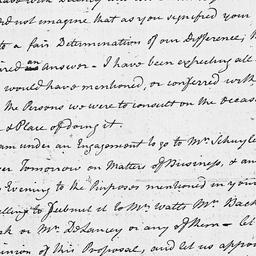 did not imagine that as you signified your
to a fair Determination of our Difference;
an answer - I have been expecting all
would have mentioned, or conferred with
the Persons we were to consult on the Occas
& Place of doing it.
am under an Engagement to go to Mr. Schuyle
Tomorrow on Matters of Business, & an
Evening to the Purposes mentioned in your
to submit it to Mr. Watts Mr. Bac
or Mr. DeLancey or any of them - let
of this Proposal, and let us appoi